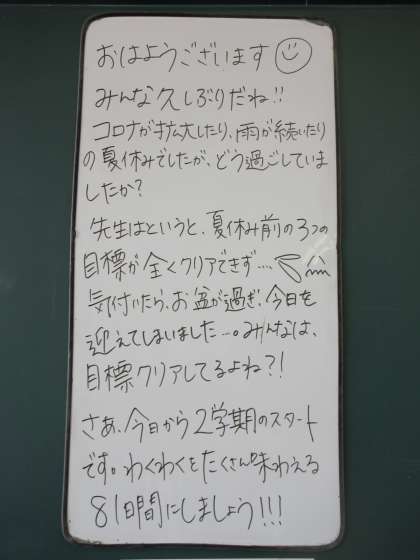 おはようございます
みんな久しぶりだね!!
コロナが拡大したり、雨が続いたり
の夏休みでしたが、どう過ごしていま
したか?
先生はというと、夏休み前の3つの
目標が全くクリアできず…
気付いたら、お盆が過ぎ、今日を
迎えてしまいました…。みんなは、
目標クリアしてるよね?!
さあ、今日から2学期のスタート
です。わくわくをたくさん味わえる
81日間にしましょう!!!